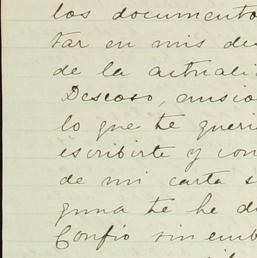 los documento
tar en mis de
de la actuali
Deseoso, ansio
lo que te queri
escribirte y con
de mi carta s
guna te he d
Confío sin emb